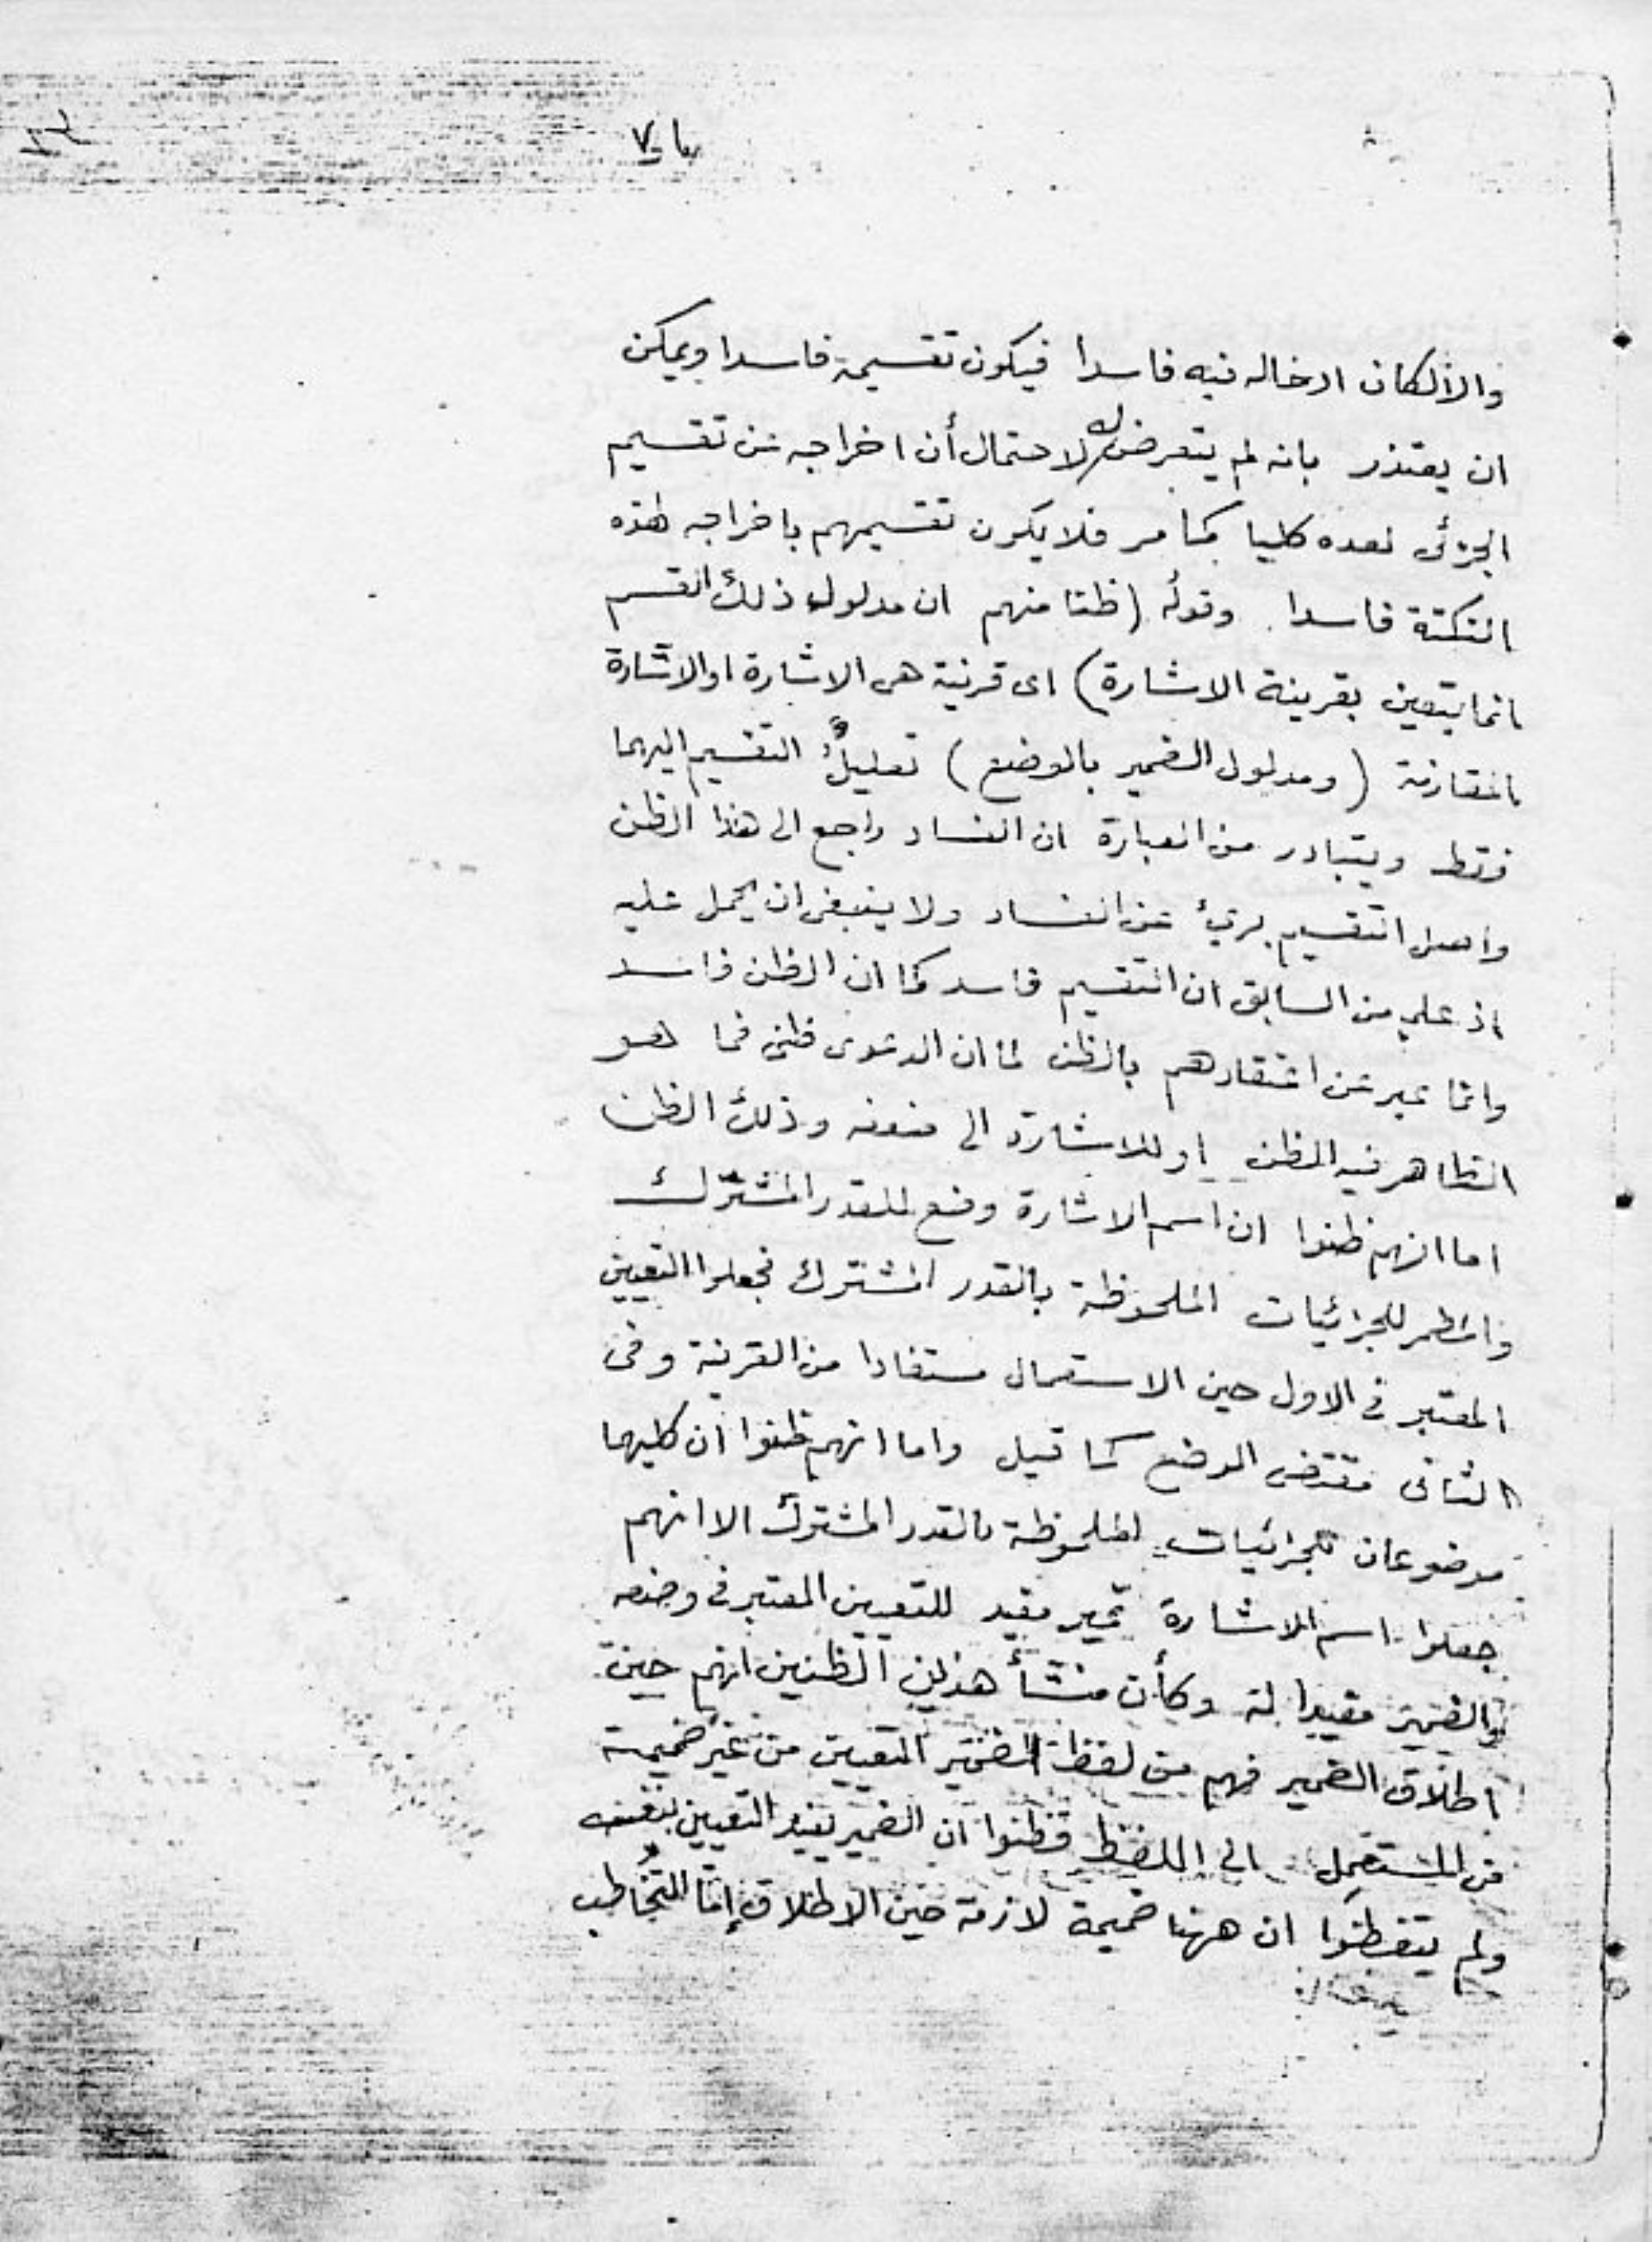 والا لكان ادخاله فيه فاسدا فيكون تقسيمه فاسدا ويمكن
ان يعتذر بانه لم يتعرض له لاحتمال أن اخراجه عن تقسيم
الجزئى لعده كليا كما مر فلا يكون تقسيمهم باخراجه لهذه
النكتة فاسدا وقوله (ظنا منهم ان مدلول ذلك القسم
انما يتعين بقرينة الاشارة) اى قرينة هى الاشارة او الاشارة
المقارنة (ومدلول الضمير بالوضع) تعليلٌ التقسيم اليهما
فقط ويتبادر من العبارة ان الفساد راجع الى هذا الظن
واصل التقسيم برئ عن الفساد ولا ينبغى ان يحمل عليه
اذ علم من السابق ان التقسيم فاسد كما ان الظن فاسد
وانما عبر عن اعتقادهم بالظن لما ان الدعوى ظنى فما هو
الظاهر فيه الظن او للاشارة الى ضعفه وذلك الظن
اما انهم ظنوا ان اسم الاشارة وضع للقدر المشترك
والضمير للجزئيات الملحوظة بالقدر المشترك فجعلوا التعيين
المعتبر فى الاول حين الاستعمال مستفادا من القرينة وفى
الثانى مقتضى الوضع كما قيل واما انهم ظنوا ان كليهما
موضوعان للجزئيات الملحوظة بالقدر المشترك الا انهم
جعلوا اسم الاشارة غير مفيد للتعيين المعتبر فى وضعه
والضمير مفيدا له وكأن منشأ هذين الظنين انهم حين
اطلاق الضمير فهم من لفظ الضمير التعيين من غير ضميمة
من المستعمل الى اللفظ فظنوا ان الضمير يفيد التعيين بنفسه
ولم يتفطنوا ان ههنا ضميمة لازمة حين الاطلاق إمّا التخاطب